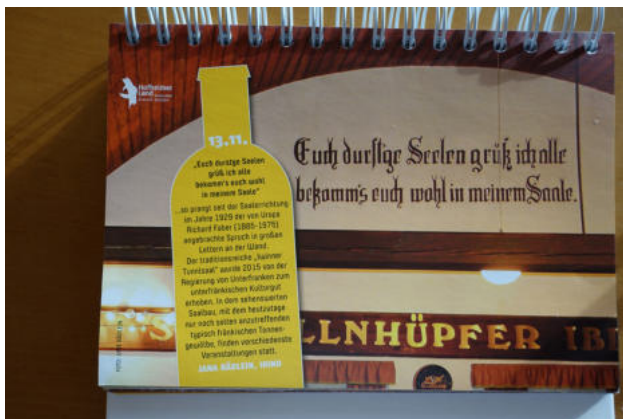 Haßfurter
Land
13.11.
„Euch durstge Seelen
grüß ich alle
bekomm's euch wohl
in meinem Saale"
...so prangt seit der Saalerrichtung
im Jahre 1929 der von Uropa
Richard Faber (1885-1975)
angebrachte Spruch in großen
Lettern an der Wand.
Der traditionsreiche
Tunnlsaal" wurde 2015 von der
Regierung von Unterfranken zum
unterfränkischen Kulturgut
erhoben. In dem sehenswerten
Saalbau, mit dem heutzutage
nur noch selten anzutreffenden
typisch fränkischen Tonnen-
gewölbe, finden verschiedenste
Veranstaltungen statt.
JANA RÄDLEIN
Euch durstige Seelen grüß ich alle
bekomm's euch wohl in meinem Saale.
LLNHÜPFER IBI